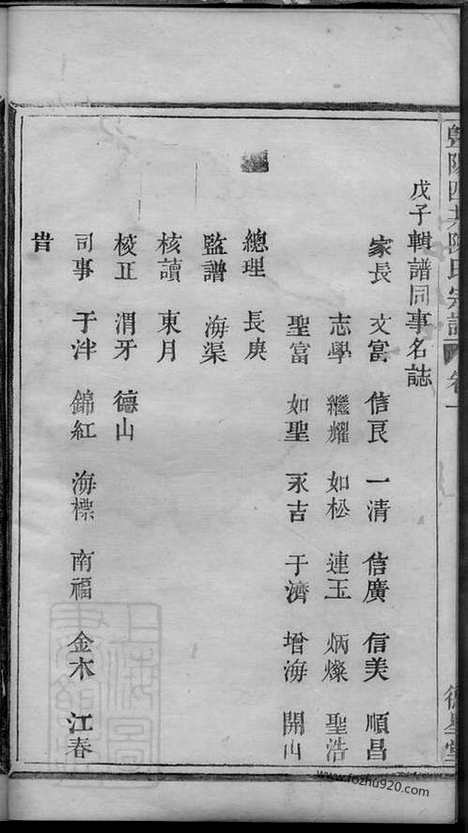 暨陽四共陳氏宗譜 卷一
戊子輯譜同事名誌
家長 文富 信良 一清 信廣 信美 順昌
志學 繼耀 如松 連玉 炳燦 聖浩
聖富 如聖 永吉 于濟 增海 開山
總理 長庚
監譜 海渠
核讀 東月
校正 渭牙 德山
司事 于泮 錦紅 海標 南福 金木 江春
旹
www.fozhu920.com